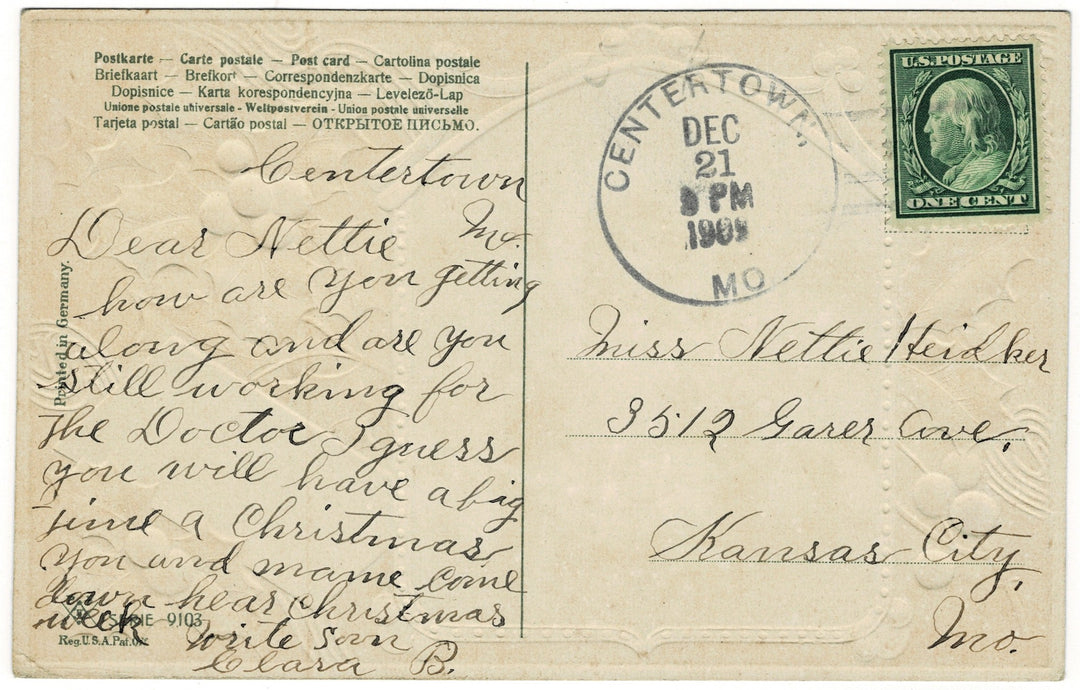 Postkarte — Carte postale — Post card — Cartolina postale
Briefkaart — Brefkort — Correspondenzkarte — Dopisnica
Dopisnice — Karta korespondencyjna — Levelező-Lap
Unione postale universale - Weltpostverein - Union postale universelle
Tarjeta postal — Cartão postal — ОТКРЫТОЕ ПИСЬМО.
Centertown
Mo.
Dear Nettie
how are you getting
along and are you
still working for
the Doctor I guess
you will have a big
time a Christmas
you and mame come
down hear christmas
week
write soon
Clara B.
Printed in Germany.
SERIE 9103
Reg. U.S.A. Pat. Off.
CENTERTOWN,
DEC
21
PM
1909
MO.
U.S. POSTAGE
ONE CENT
Miss Nettie Heidker
3512
Kansas City,
Mo.